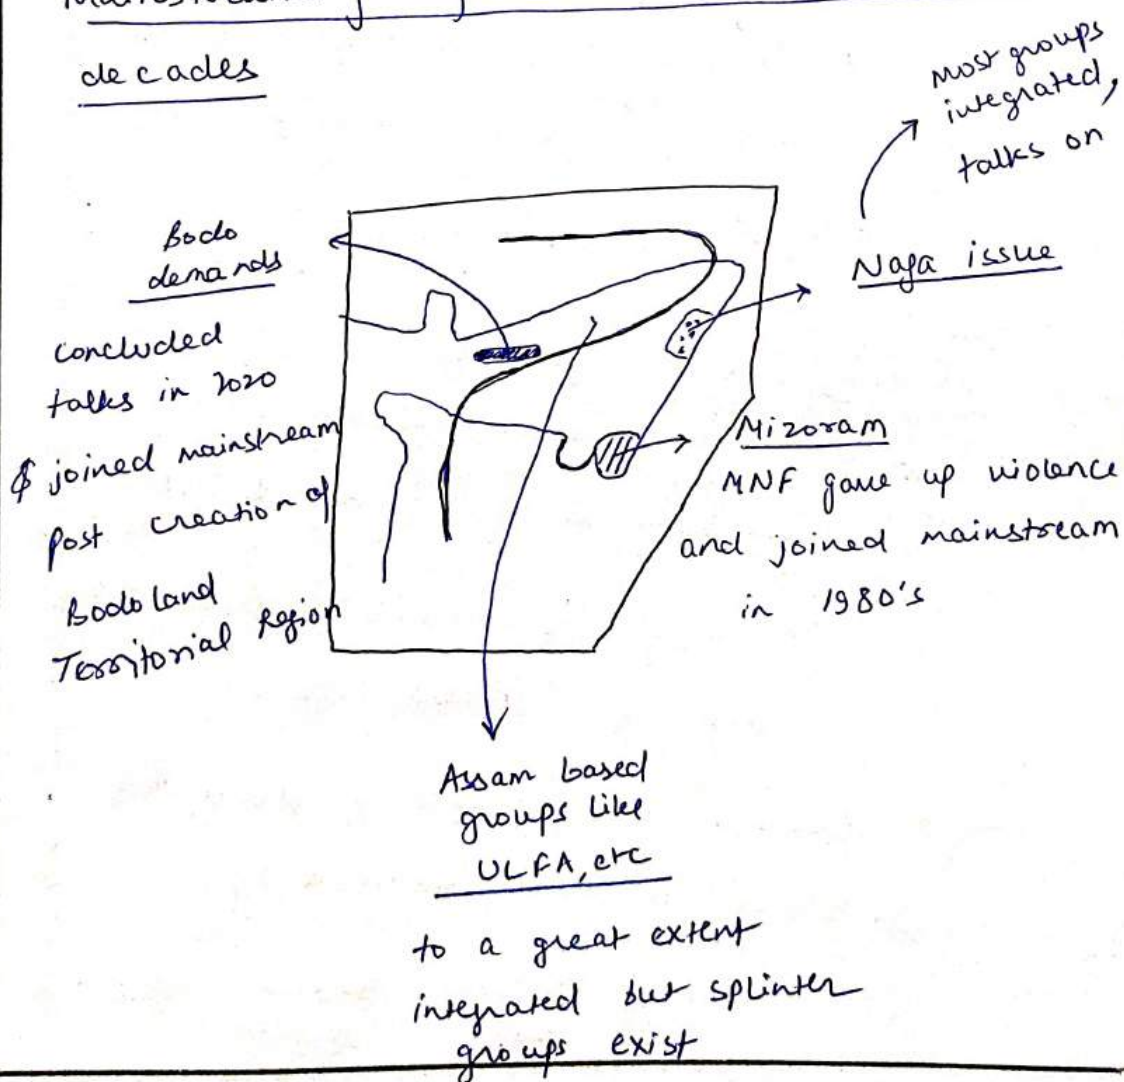 decades
most groups
integrated,
talks on
Naga issue
Bodo
demands
concluded
talks in 2020
& joined mainstream
post creation of
Bodoland
Territorial Region
Mizoram
MNF gave up violence
and joined mainstream
in 1980's
Assam based
groups like
ULFA, etc
to a great extent
integrated but splinter
groups exist